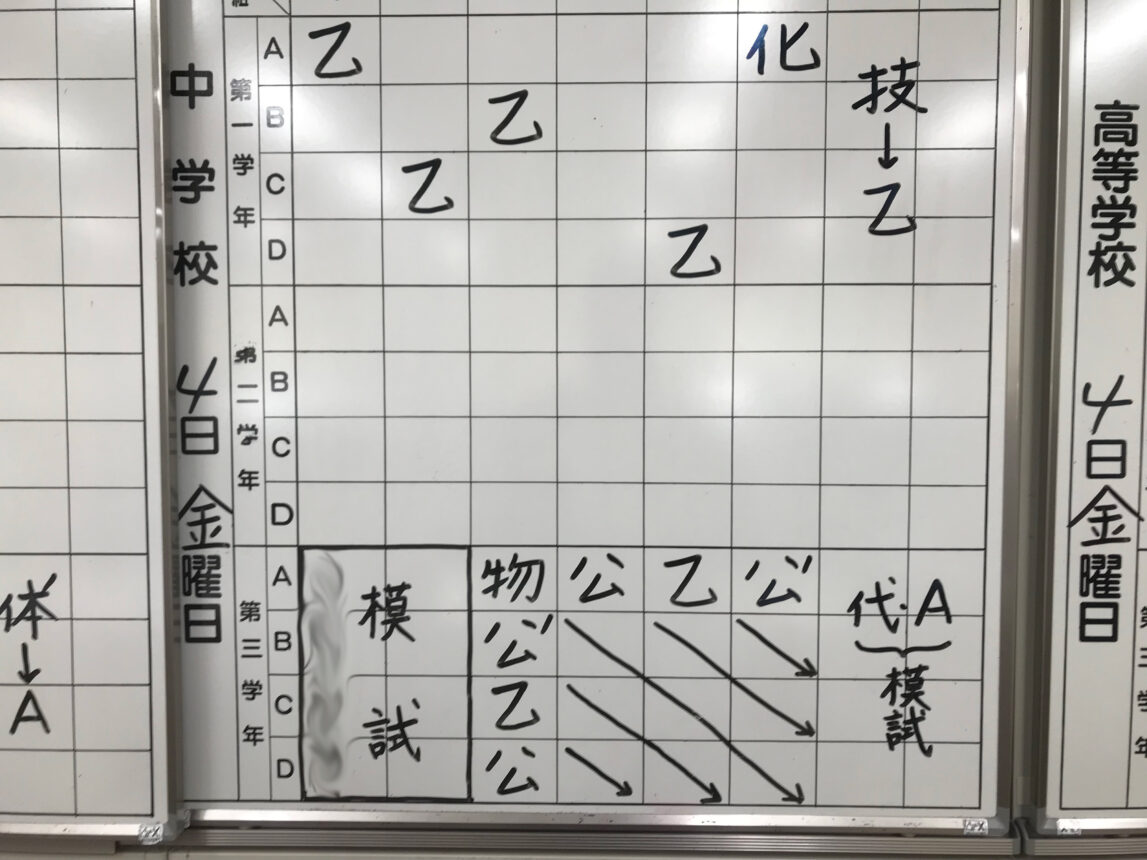 体
↓
A
中学校 4日金曜日
第一学年
A 乙 化
B 乙
C 乙
D 乙
技
↓
乙
第二学年
A
B
C
D
第三学年
A 物 公 乙 公゛
B 公゛
C 乙
D 公
模試
代・A
模試
高等学校 4日金曜日